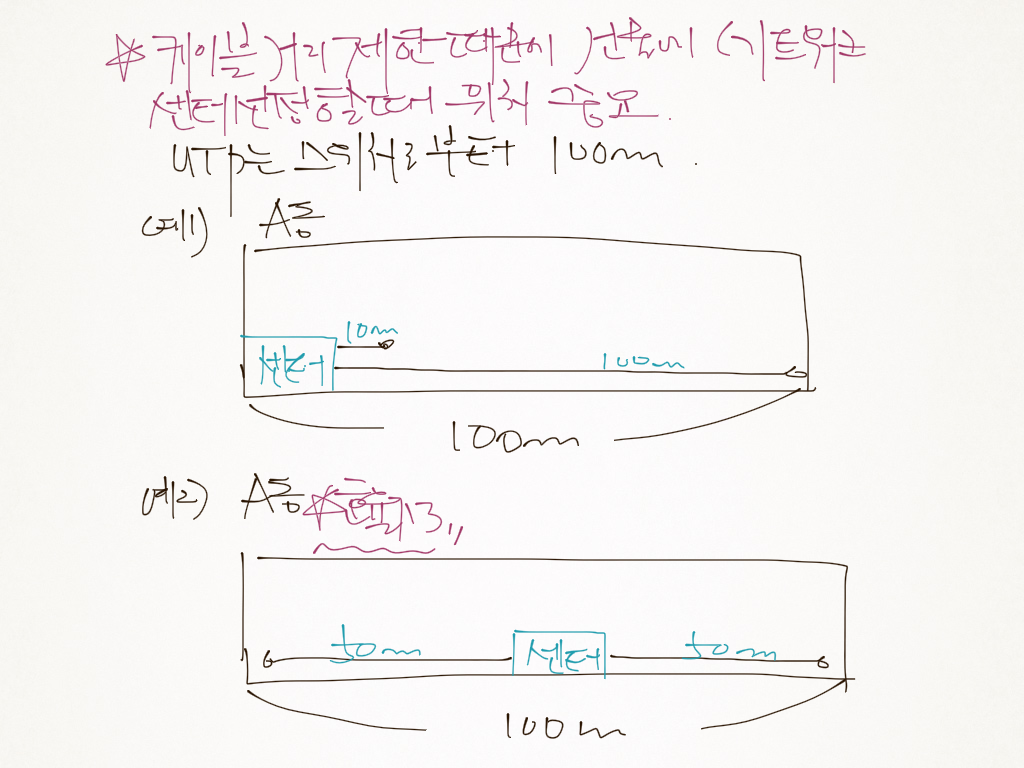 ☆ 케이블 거리 제한 때문에 건물내 네트워크
센터 선정할때 위치 중요.
UTP는 스위치로부터 100m.
예1) A동
10m
센터
100m
100m
예2) A동 ☆
50m 센터 50m
100m